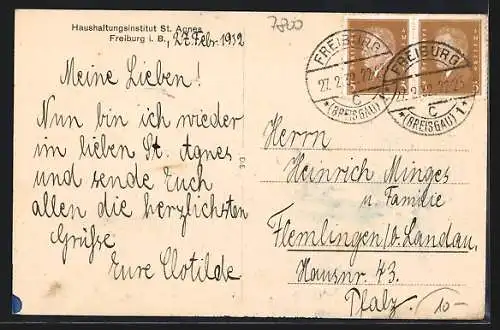 Haushaltungsinstitut St. Agnes
Freiburg i. B.
27. Febr. 1932
7800
Meine Lieben!
Nun bin ich wieder
im lieben St. Agnes
und sende Euch
allen die herzlichsten
Grüsse
Eure Clotilde
FREIBURG
27. 2. 32. 22-23
C
*(BREISGAU) 1*
FREIBURG
27. 2. 32. 22-23
C
*(BREISGAU) 1*
Herrn
Heinrich Minges
u. Familie
Flemlingen/b. Landau.
Hausnr. 43.
Pfalz.
10-